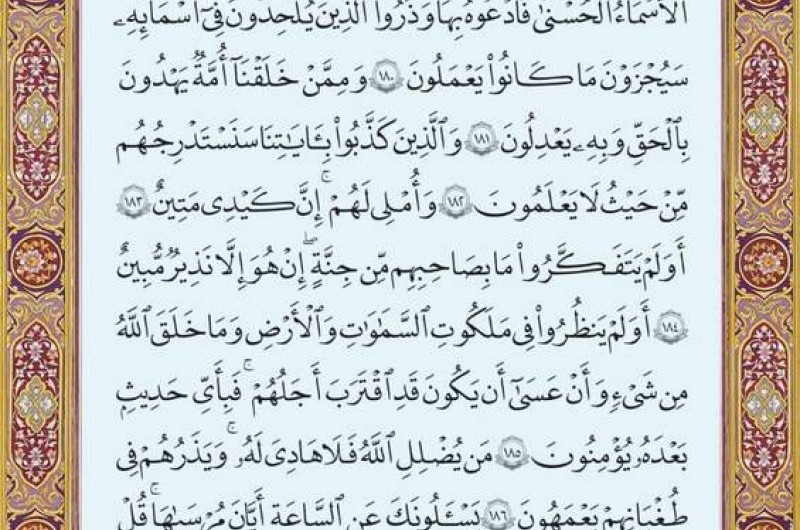 ٱلْأَسْمَآءُ ٱلْحُسْنَىٰ فَٱدْعُوهُ بِهَا وَذَرُوا۟ ٱلَّذِينَ يُلْحِدُونَ فِىٓ أَسْمَـٰٓئِهِۦ
سَيُجْزَوْنَ مَا كَانُوا۟ يَعْمَلُونَ ١٨٠ وَمِمَّنْ خَلَقْنَآ أُمَّةٌ يَهْدُونَ
بِٱلْحَقِّ وَبِهِۦ يَعْدِلُونَ ١٨١ وَٱلَّذِينَ كَذَّبُوا۟ بِـَٔايَـٰتِنَا سَنَسْتَدْرِجُهُم
مِّنْ حَيْثُ لَا يَعْلَمُونَ ١٨٢ وَأُمْلِى لَهُمْ ۚ إِنَّ كَيْدِى مَتِينٌ ١٨٣
أَوَلَمْ يَتَفَكَّرُوا۟ مَا بِصَاحِبِهِم مِّن جِنَّةٍ ۚ إِنْ هُوَ إِلَّا نَذِيرٌ مُّبِينٌ
١٨٤ أَوَلَمْ يَنظُرُوا۟ فِى مَلَكُوتِ ٱلسَّمَـٰوَٰتِ وَٱلْأَرْضِ وَمَا خَلَقَ ٱللَّهُ
مِن شَىْءٍ وَأَنْ عَسَىٰٓ أَن يَكُونَ قَدِ ٱقْتَرَبَ أَجَلُهُمْ ۖ فَبِأَىِّ حَدِيثٍۭ
بَعْدَهُۥ يُؤْمِنُونَ ١٨٥ مَن يُضْلِلِ ٱللَّهُ فَلَا هَادِىَ لَهُۥ ۚ وَيَذَرُهُمْ فِى
طُغْيَـٰنِهِمْ يَعْمَهُونَ ١٨٦ يَسْـَٔلُونَكَ عَنِ ٱلسَّاعَةِ أَيَّانَ مُرْسَىٰهَا ۖ قُلْ